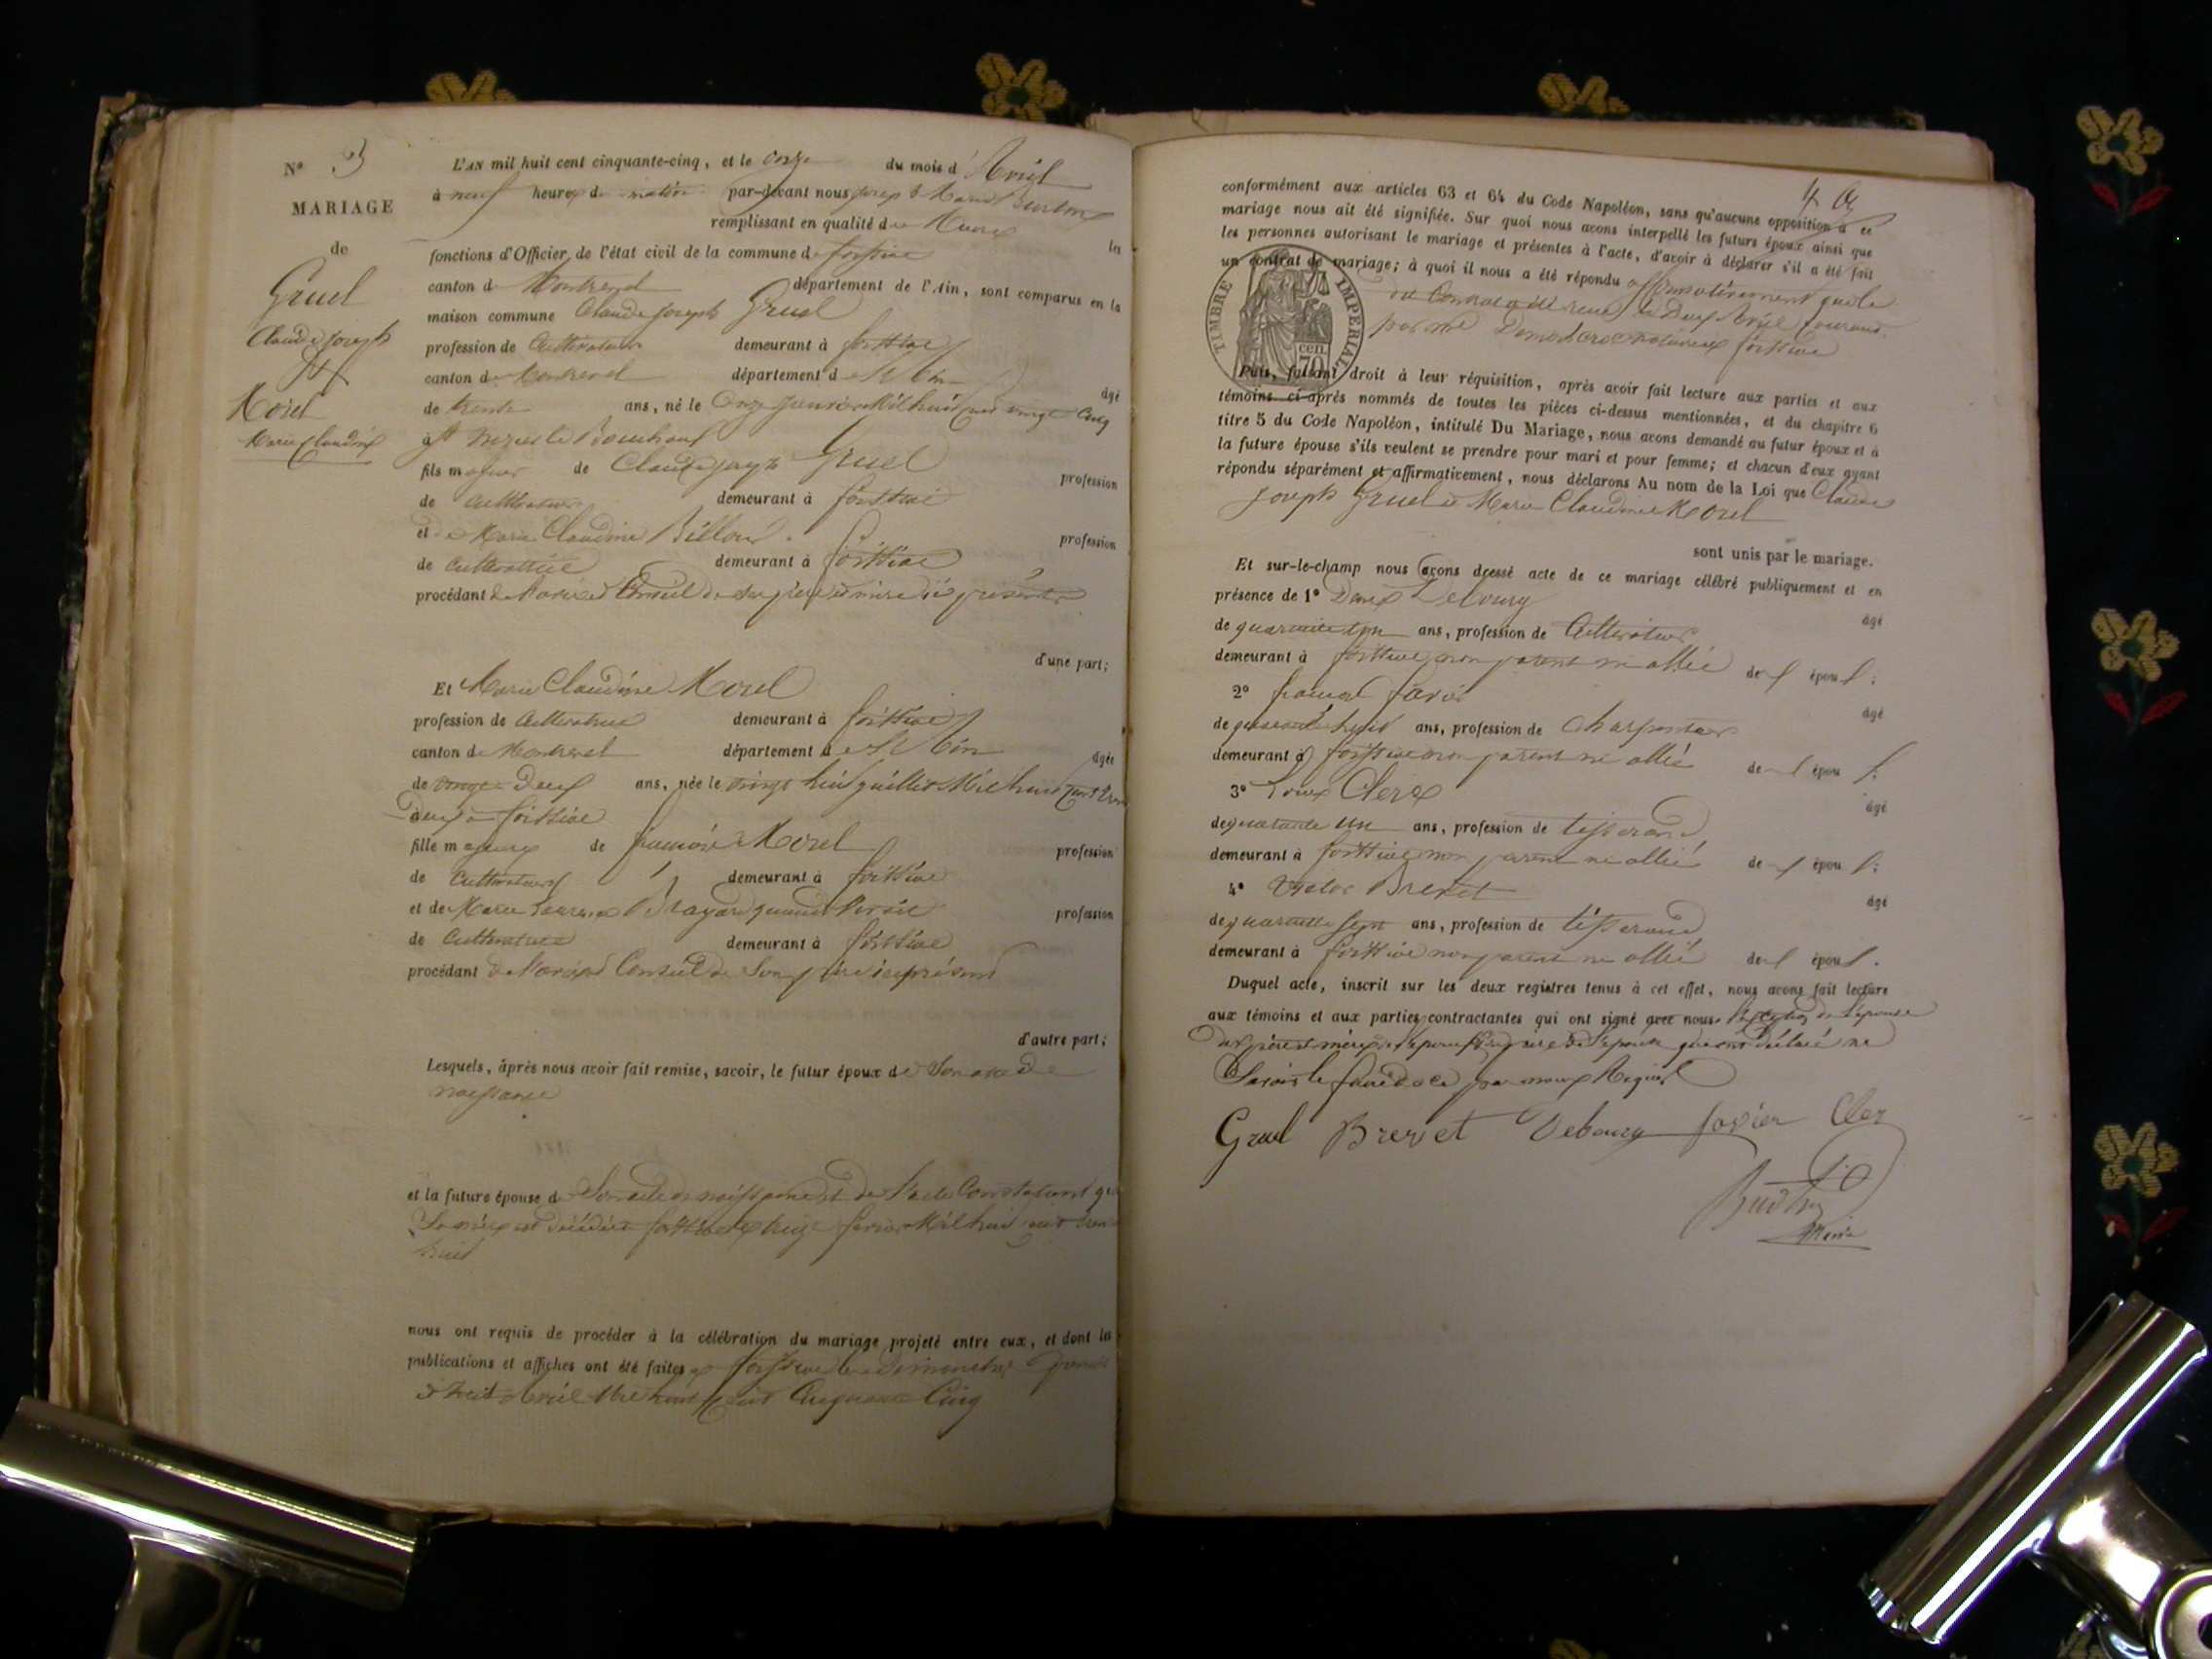 N° 3
MARIAGE
de
Gruel
Claude Joseph
et
Morel
Marie Claudine
L'AN mil huit cent cinquante-cinq, et le onze du mois d'Avril
à neuf heures du matin par-devant nous Joseph Marie
remplissant en qualité de Maire les
fonctions d'Officier de l'état civil de la commune de foissiat
canton de Montrevel département de l'Ain, sont comparus en la
maison commune Claude Joseph Gruel
profession de Cultivateur demeurant à foissiat
canton de Montrevel département de l'Ain âgé
de trente ans, né le Onze Janvier Mil huit cent vingt Cinq
à St Nizier le Bouchoux
fils majeur de Claude Joseph Gruel profession
de Cultivateur demeurant à foissiat
et de Marie Claudine Billoud profession
de Cultivatrice demeurant à foissiat
procédant de l'avis et Conseil de ses père et mère ici présents
d'une part;
Et Marie Claudine Morel
profession de Cultivatrice demeurant à foissiat
canton de Montrevel département de l'Ain âgée
de vingt Deux ans, née le vingt huit juillet Mil huit Cent trente
deux à foissiat
fille majeure de françois Morel profession
de Cultivateur demeurant à foissiat
et de Marie Brayard quand vivait profession
de Cultivatrice demeurant à foissiat
procédant de l'avis et Conseil de Son père ici présent
d'autre part;
Lesquels, après nous avoir fait remise, savoir, le futur époux de Son acte de
naissance
et la future épouse de Son acte de naissance et de l'acte Constatant que
Sa mère est décédée à foissiat le treize février Mil huit cent trente
huit
nous ont requis de procéder à la célébration du mariage projeté entre eux, et dont les
publications et affiches ont été faites à foissiat les Dimanches premier
et huit Avril Mil huit Cent Cinquante Cinq
conformément aux articles 63 et 64 du Code Napoléon, sans qu'aucune opposition à ce
mariage nous ait été signifiée. Sur quoi nous avons interpellé les futurs époux ainsi que
les personnes autorisant le mariage et présentes à l'acte, d'avoir à déclarer s'il a été fait
un contrat de mariage; à quoi il nous a été répondu affirmativement que le
dit Contrat a été reçu le Deux Avril Courant
par me notaire à foissiat
TIMBRE IMPERIAL
70 cen.
Puis, faisant droit à leur réquisition, après avoir fait lecture aux parties et aux
témoins ci-après nommés de toutes les pièces ci-dessus mentionnées, et du chapitre 6
titre 5 du Code Napoléon, intitulé Du Mariage, nous avons demandé au futur époux et à
la future épouse s'ils veulent se prendre pour mari et pour femme; et chacun d'eux ayant
répondu séparément et affirmativement, nous déclarons Au nom de la Loi que Claude
Joseph Gruel et Marie Claudine Morel
sont unis par le mariage.
Et sur-le-champ nous avons dressé acte de ce mariage célébré publiquement et en
présence de 1° Denis Debourg âgé
de quarante un ans, profession de Cultivateur
demeurant à foissiat non parent ni allié de l épou
2° françois favier âgé
de quarante huit ans, profession de Charpentier
demeurant à foissiat non parent ni allié de l épou
3° Louis Clerc âgé
de quarante un ans, profession de tisserand
demeurant à foissiat non parent ni allié de l épou
4° Victor Brevet âgé
de quarante sept ans, profession de tisserand
demeurant à foissiat non parent ni allié de l épou
Duquel acte, inscrit sur les deux registres tenus à cet effet, nous avons fait lecture
aux témoins et aux parties contractantes qui ont signé avec nous à l'exception de l'épouse
des père et mère de l'époux et du père de l'épouse qui ont déclaré ne
Savoir le faire de ce par nous Requis
Gruel Brevet Debourg favier Clerc
Maire